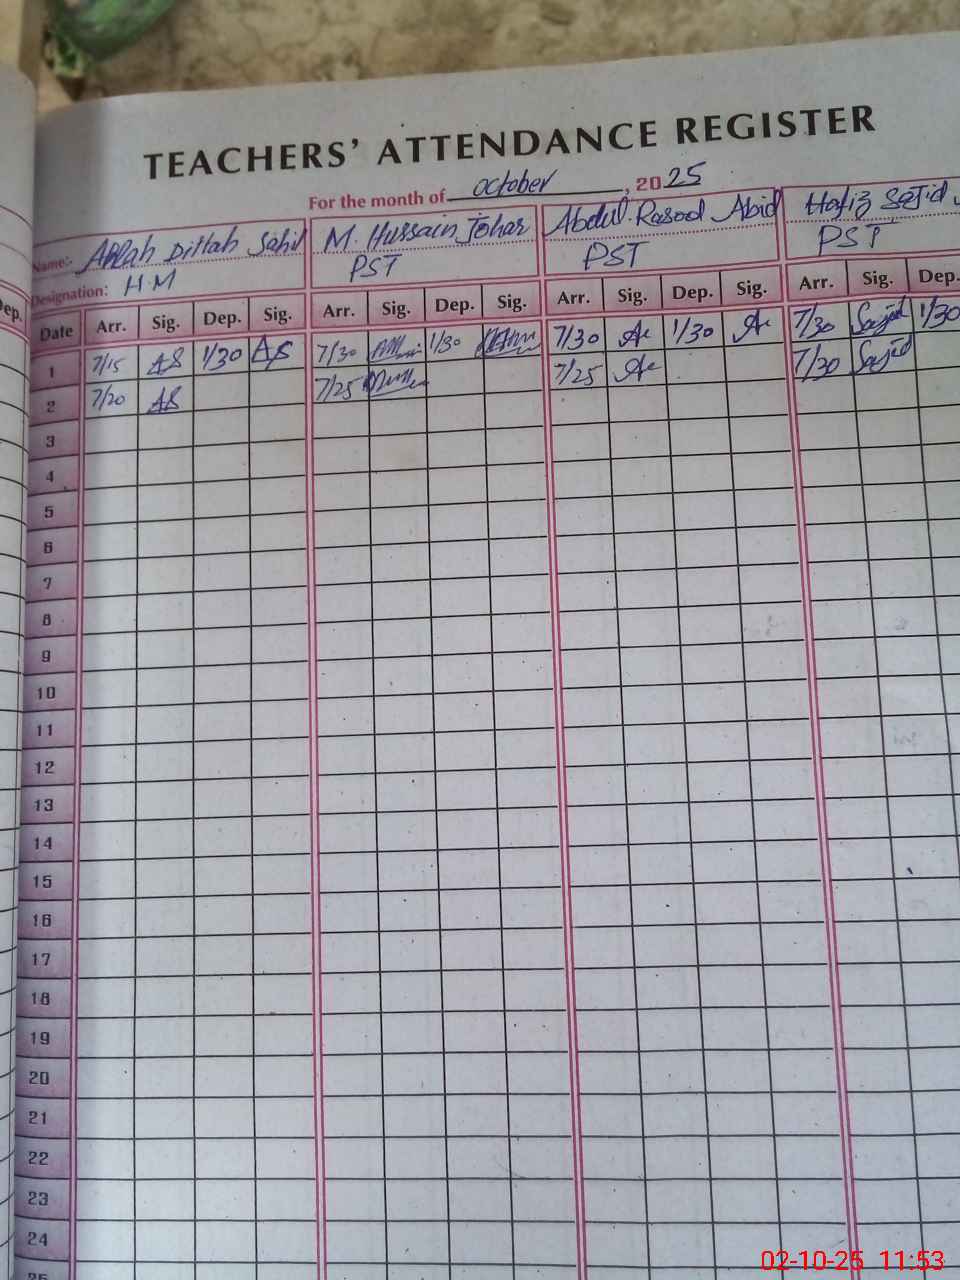 TEACHERS' ATTENDANCE REGISTER
For the month of october, 2025
Name:- Allah Dittah Sahil M. Hussain Johar Abdul Rasool Abid Hafiz Sajid
Designation: H.M PST PST PST
Dep.
Date Arr. Sig. Dep. Sig. Arr. Sig. Dep. Sig. Arr. Sig. Dep. Sig. Arr. Sig. Dep.
1 7/15 AS 1/30 AS 7/30 1/30 7/30 1/30 7/30 Sajid 1/30
2 7/20 AS 7/25 7/25 7/30 Sajid
3
4
5
6
7
8
9
10
11
12
13
14
15
16
17
18
19
20
21
22
23
24
25
02-10-25 11:53